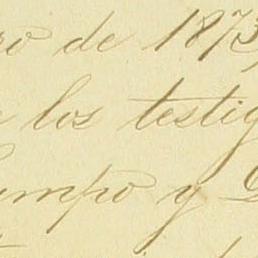 ro de 1873
los testig
umpo y